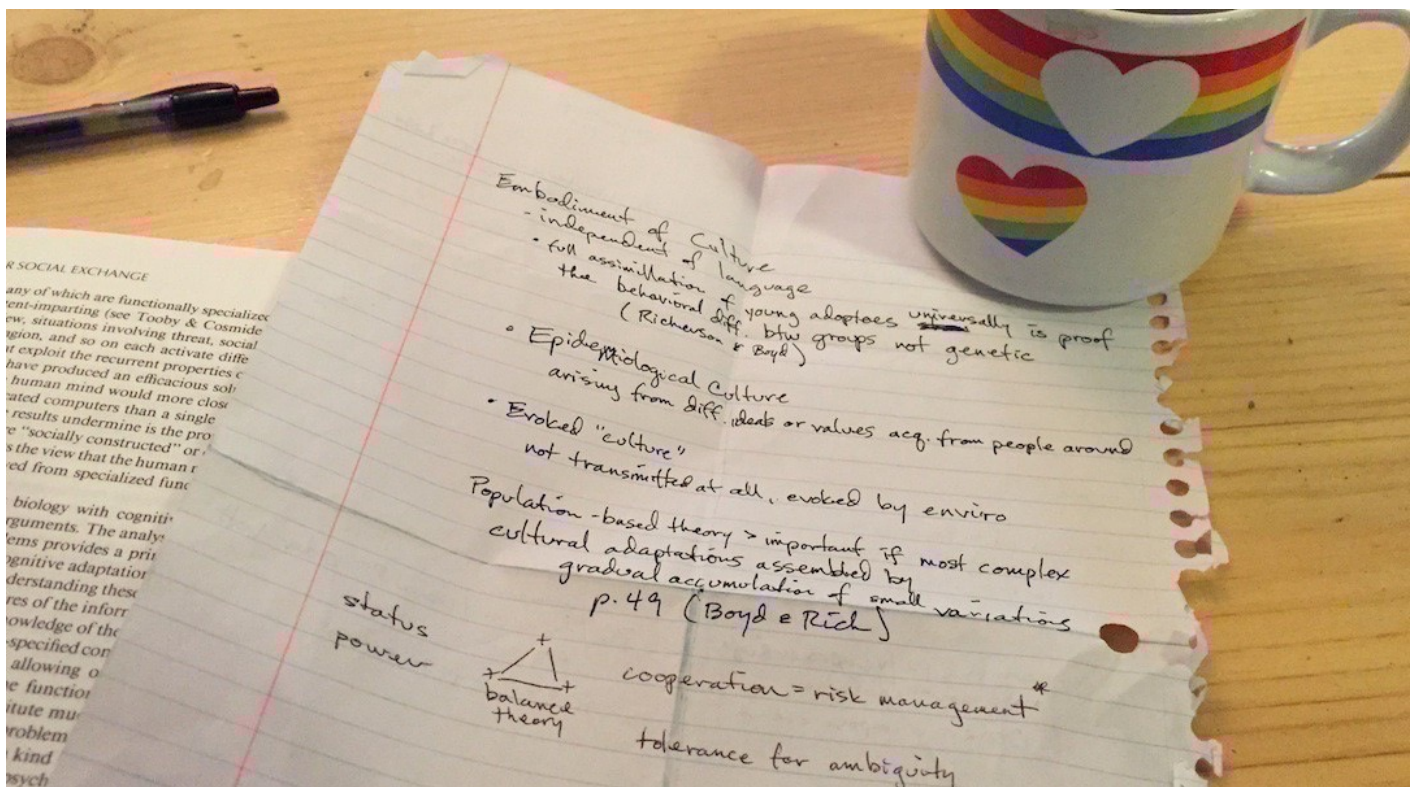 R SOCIAL EXCHANGE
any of which are functionally specialized
ent-imparting (see Tooby & Cosmide
ew, situations involving threat, social
gion, and so on each activate diffe
at exploit the recurrent properties o
have produced an efficacious sol
human mind would more close
cated computers than a single
results undermine is the pro
e "socially constructed" or
s the view that the human r
ved from specialized func
biology with cogniti
rguments. The analy
lems provides a prin
ognitive adaptation
derstanding these
res of the inforr
owledge of the
-specified con
allowing o
e function
itute mu
problem
kind
psych
Embodiment of Culture
- independent of language
• full assimilation of young adoptees universally is proof
the behavioral diff. btw groups not genetic
(Richerson & Boyd)
• Epidemiological Culture
arising from diff. ideas or values acq. from people around
• Evoked "culture"
not transmitted at all, evoked by enviro
Population-based theory > important if most complex
cultural adaptations assembled by
gradual accumulation of small variations
p. 49 (Boyd e Rich)
status
power
+
+ +
balance
theory
cooperation = risk management*
tolerance for ambiguity